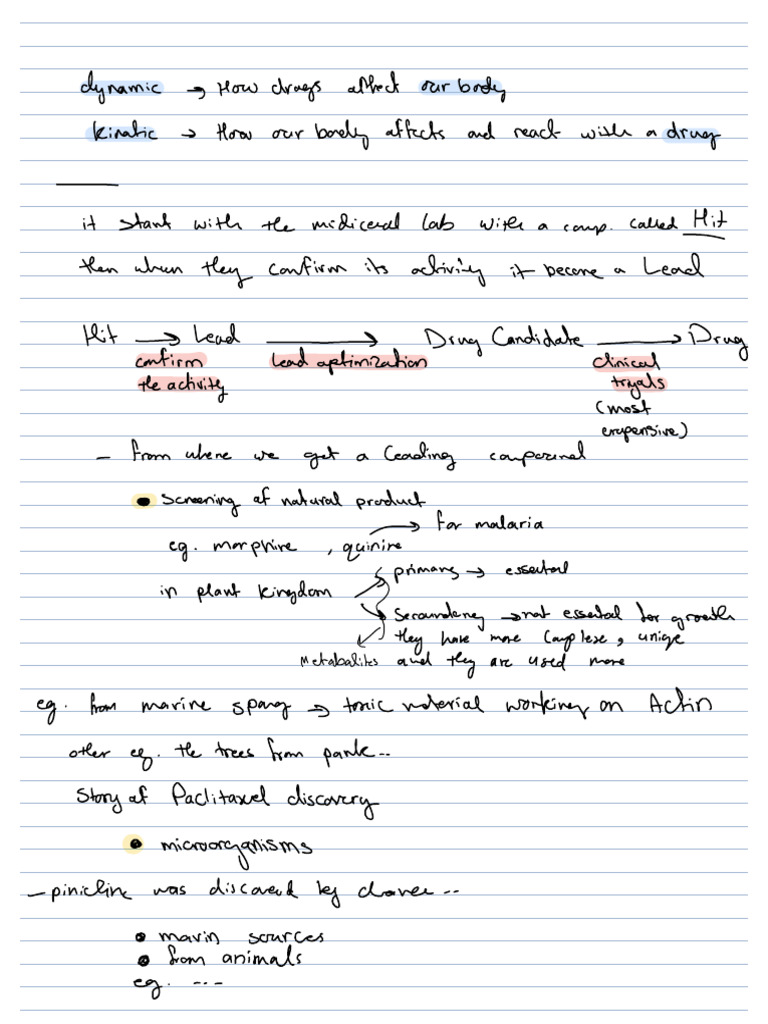 dynamic → How drugs affect our body
kinatic → How our body affects and react with a drug
it start with the midicenal lab with a comp. called Hit
then when they confirm its activity it become a Lead
Hit → Lead → Drug Candidate → Drug
confirm the activity
Lead optimization
clinical tryals
(most expensive)
- from where we get a leading compound
• screening of natural product
eg. morphine, quinine → for malaria
in plant kingdom
primary → essental
secoundery → not essental for growth
they have more complexe, uniqe
metabolites and they are used more
eg. from marine spong → toxic material working on Actin
other eg. the trees from park..
Story of Paclitaxel discovery
• microorganisms
- piniciline was discoverd by chance..
• marin sources
• from animals
eg. ...